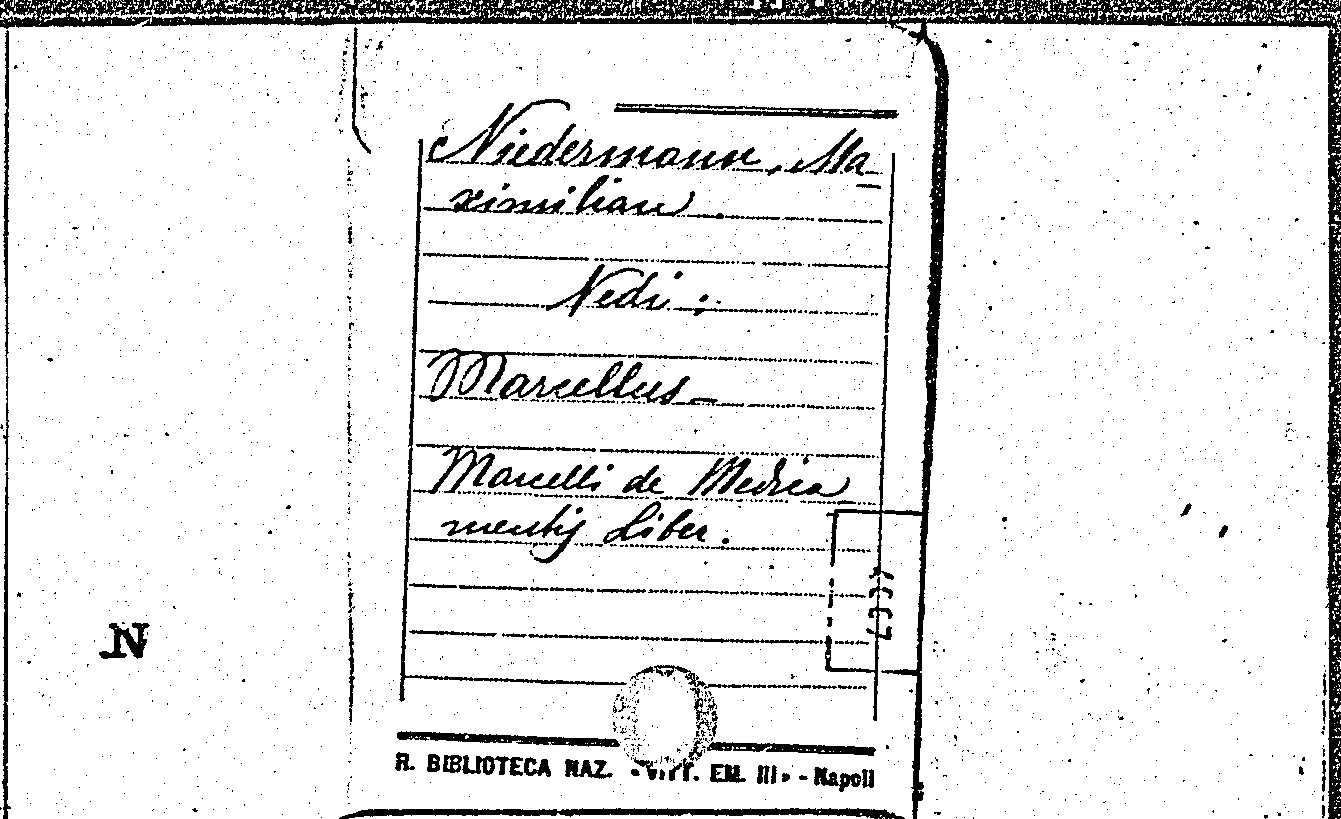 Niedermann, Ma-
ximilian.
Vedi:
Marcellus-
Marcelli de Medica
mentis Liber.
N
R. BIBLIOTECA NAZ. «VITT. EM. III» - Napoli